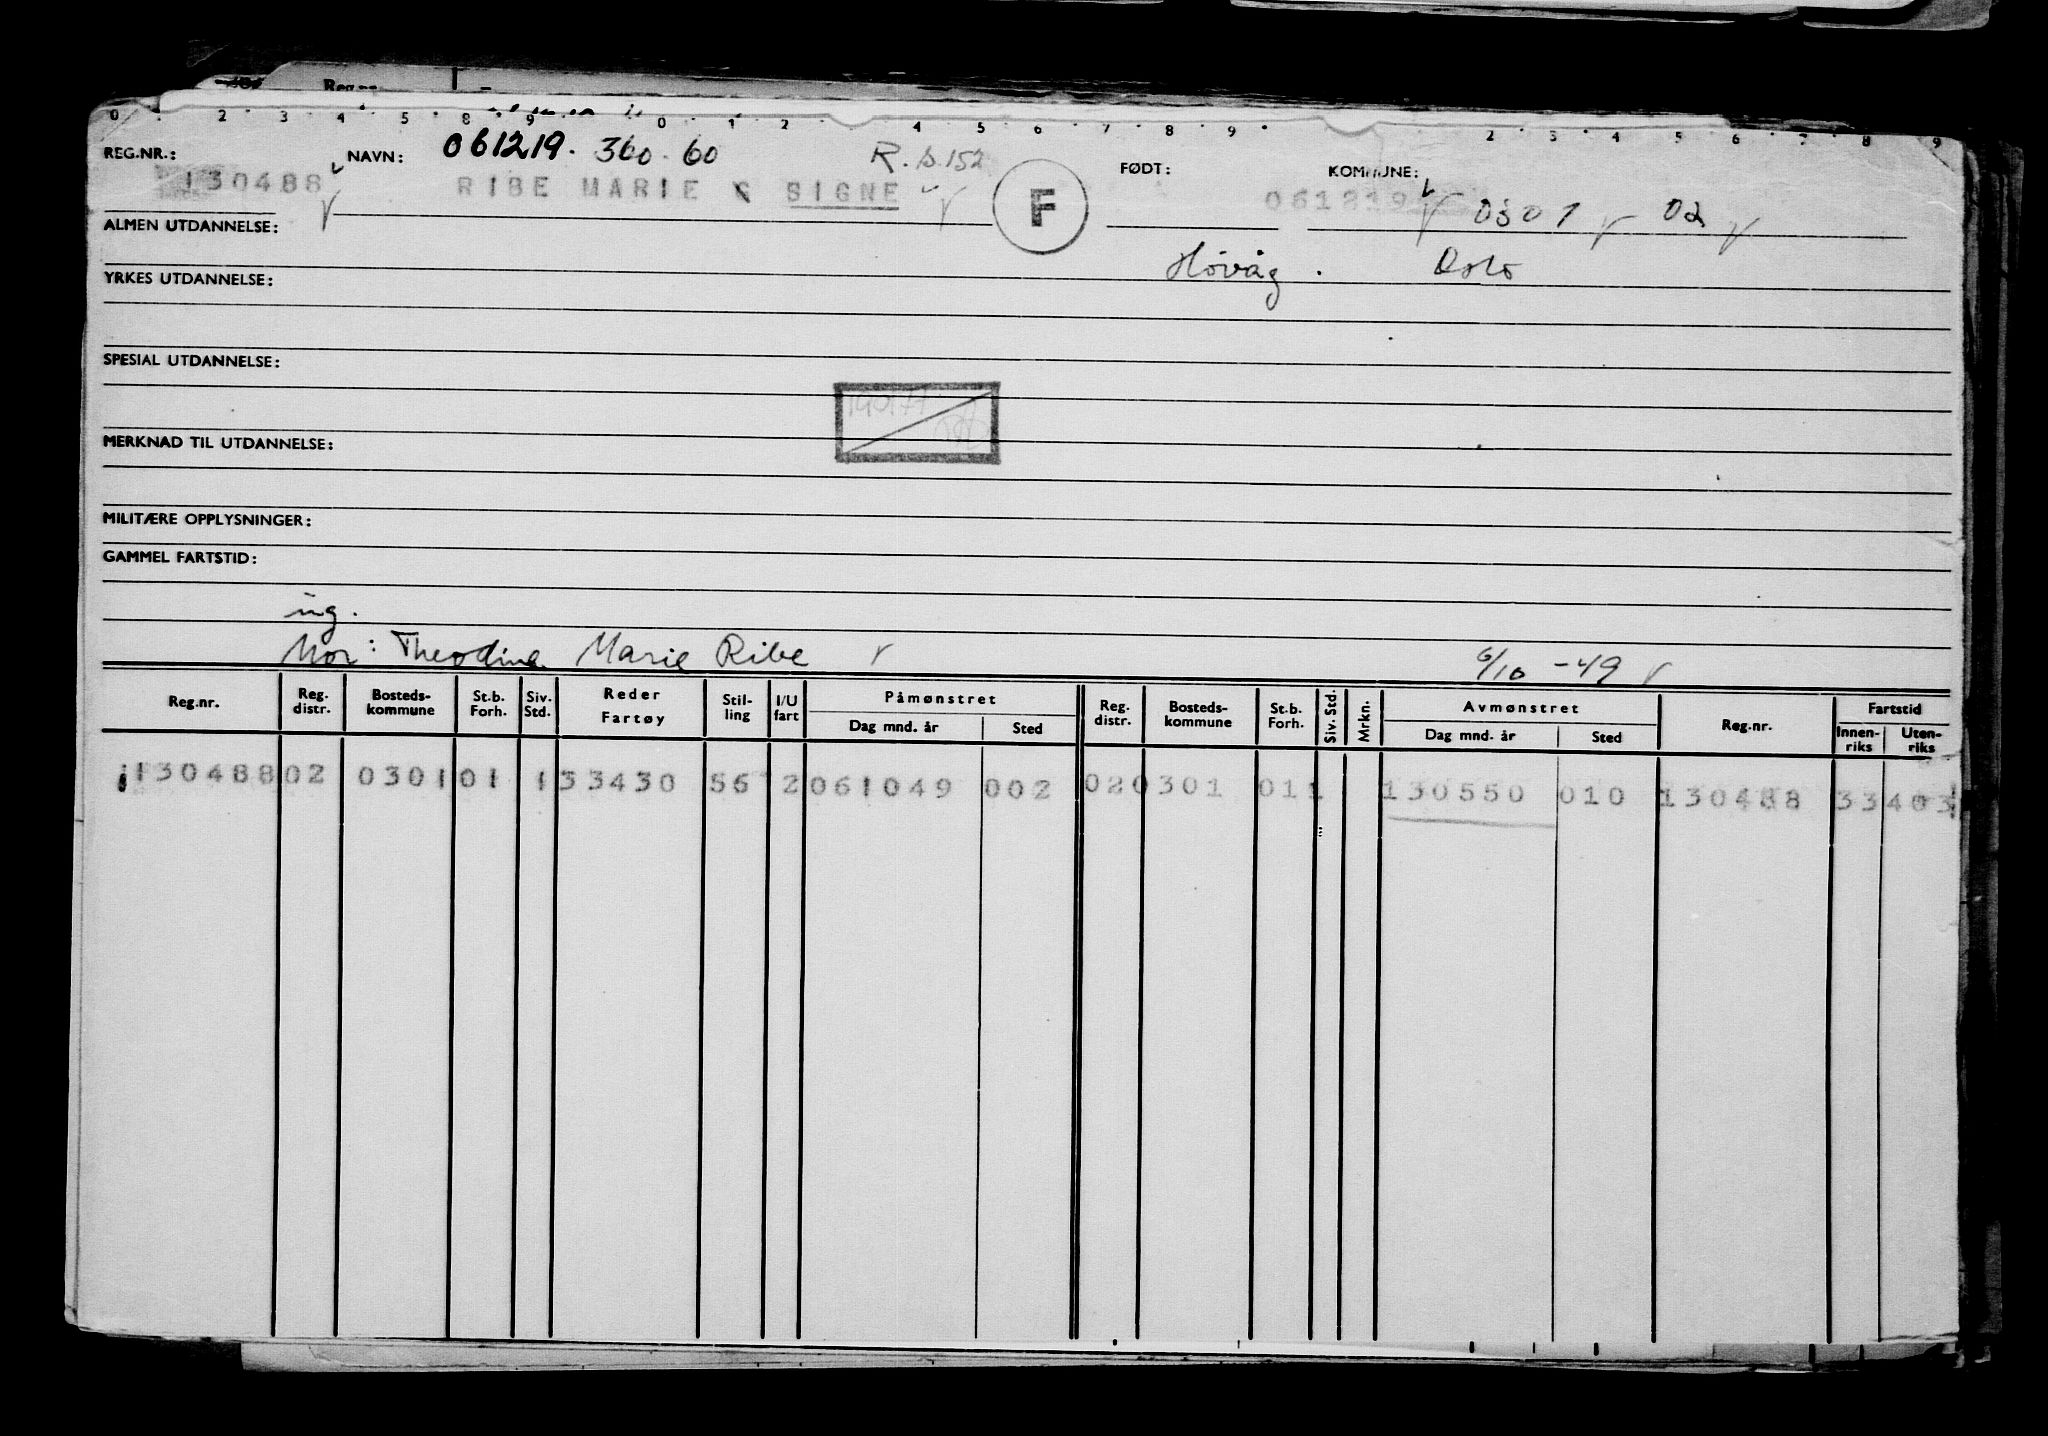 0 2 3 4 5 8 9 0 1 2 4 5 6 7 8 9 2 3 4 5 6 7 8 9
REG.NR.: NAVN: 061219. 360. 60 FØDT: KOMMUNE:
130488 RIBE MARIE SIGNE F 061219 0301 02
ALMEN UTDANNELSE:
Høvåg . Oslo
YRKES UTDANNELSE:
SPESIAL UTDANNELSE:
MERKNAD TIL UTDANNELSE:
MILITÆRE OPPLYSNINGER:
GAMMEL FARTSTID:
ing.
Mor: Theodine Marie Ribe 6/10 -49
Reg.nr. Reg. distr. Bosteds-kommune St.b. Forh. Siv. Std. Reder Fartøy Stil-ling I/U fart Påmønstret Dag mnd. år Sted Reg. distr. Bosteds-kommune St.b. Forh. Siv. Std. Mrkn. Avmønstret Dag mnd. år Sted Reg.nr. Fartstid Innen-riks Uten-riks
130488 02 0301 01 1 33430 56 2 061049 002 02 0301 01 1 130550 010 130488 33 403